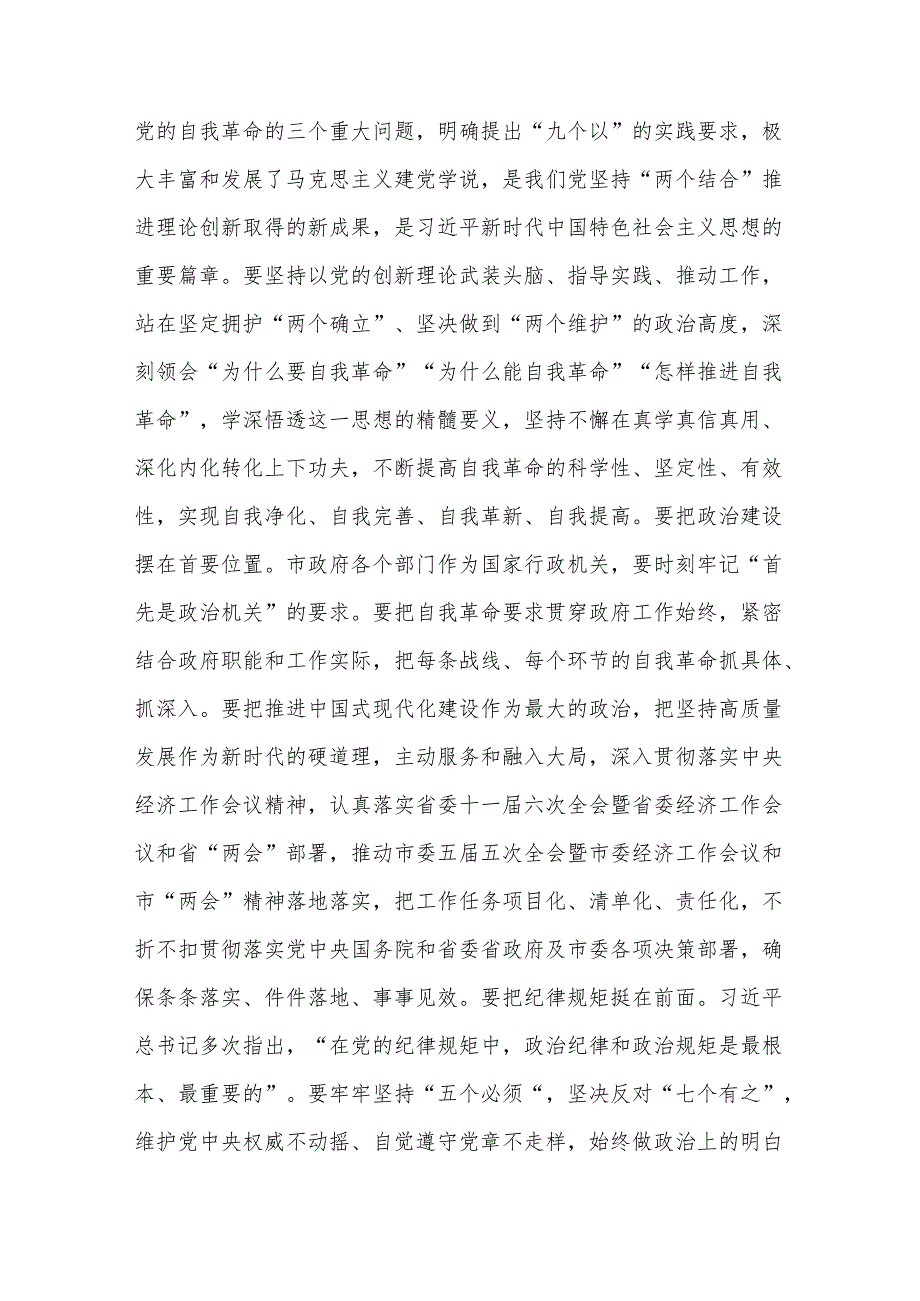 党的自我革命的三个重大问题，明确提出“九个以”的实践要求，极
大丰富和发展了马克思主义建党学说，是我们党坚持“两个结合”推
进理论创新取得的新成果，是习近平新时代中国特色社会主义思想的
重要篇章。要坚持以党的创新理论武装头脑、指导实践、推动工作，
站在坚定拥护“两个确立”、坚决做到“两个维护”的政治高度，深
刻领会“为什么要自我革命”“为什么能自我革命”“怎样推进自我
革命”，学深悟透这一思想的精髓要义，坚持不懈在真学真信真用、
深化内化转化上下功夫，不断提高自我革命的科学性、坚定性、有效
性，实现自我净化、自我完善、自我革新、自我提高。要把政治建设
摆在首要位置。市政府各个部门作为国家行政机关，要时刻牢记“首
先是政治机关”的要求。要把自我革命要求贯穿政府工作始终，紧密
结合政府职能和工作实际，把每条战线、每个环节的自我革命抓具体、
抓深入。要把推进中国式现代化建设作为最大的政治，把坚持高质量
发展作为新时代的硬道理，主动服务和融入大局，深入贯彻落实中央
经济工作会议精神，认真落实省委十一届六次全会暨省委经济工作会
议和省“两会”部署，推动市委五届五次全会暨市委经济工作会议和
市“两会”精神落地落实，把工作任务项目化、清单化、责任化，不
折不扣贯彻落实党中央国务院和省委省政府及市委各项决策部署，确
保条条落实、件件落地、事事见效。要把纪律规矩挺在前面。习近平
总书记多次指出，“在党的纪律规矩中，政治纪律和政治规矩是最根
本、最重要的”。要牢牢坚持“五个必须“，坚决反对“七个有之”，
维护党中央权威不动摇、自觉遵守党章不走样，始终做政治上的明白